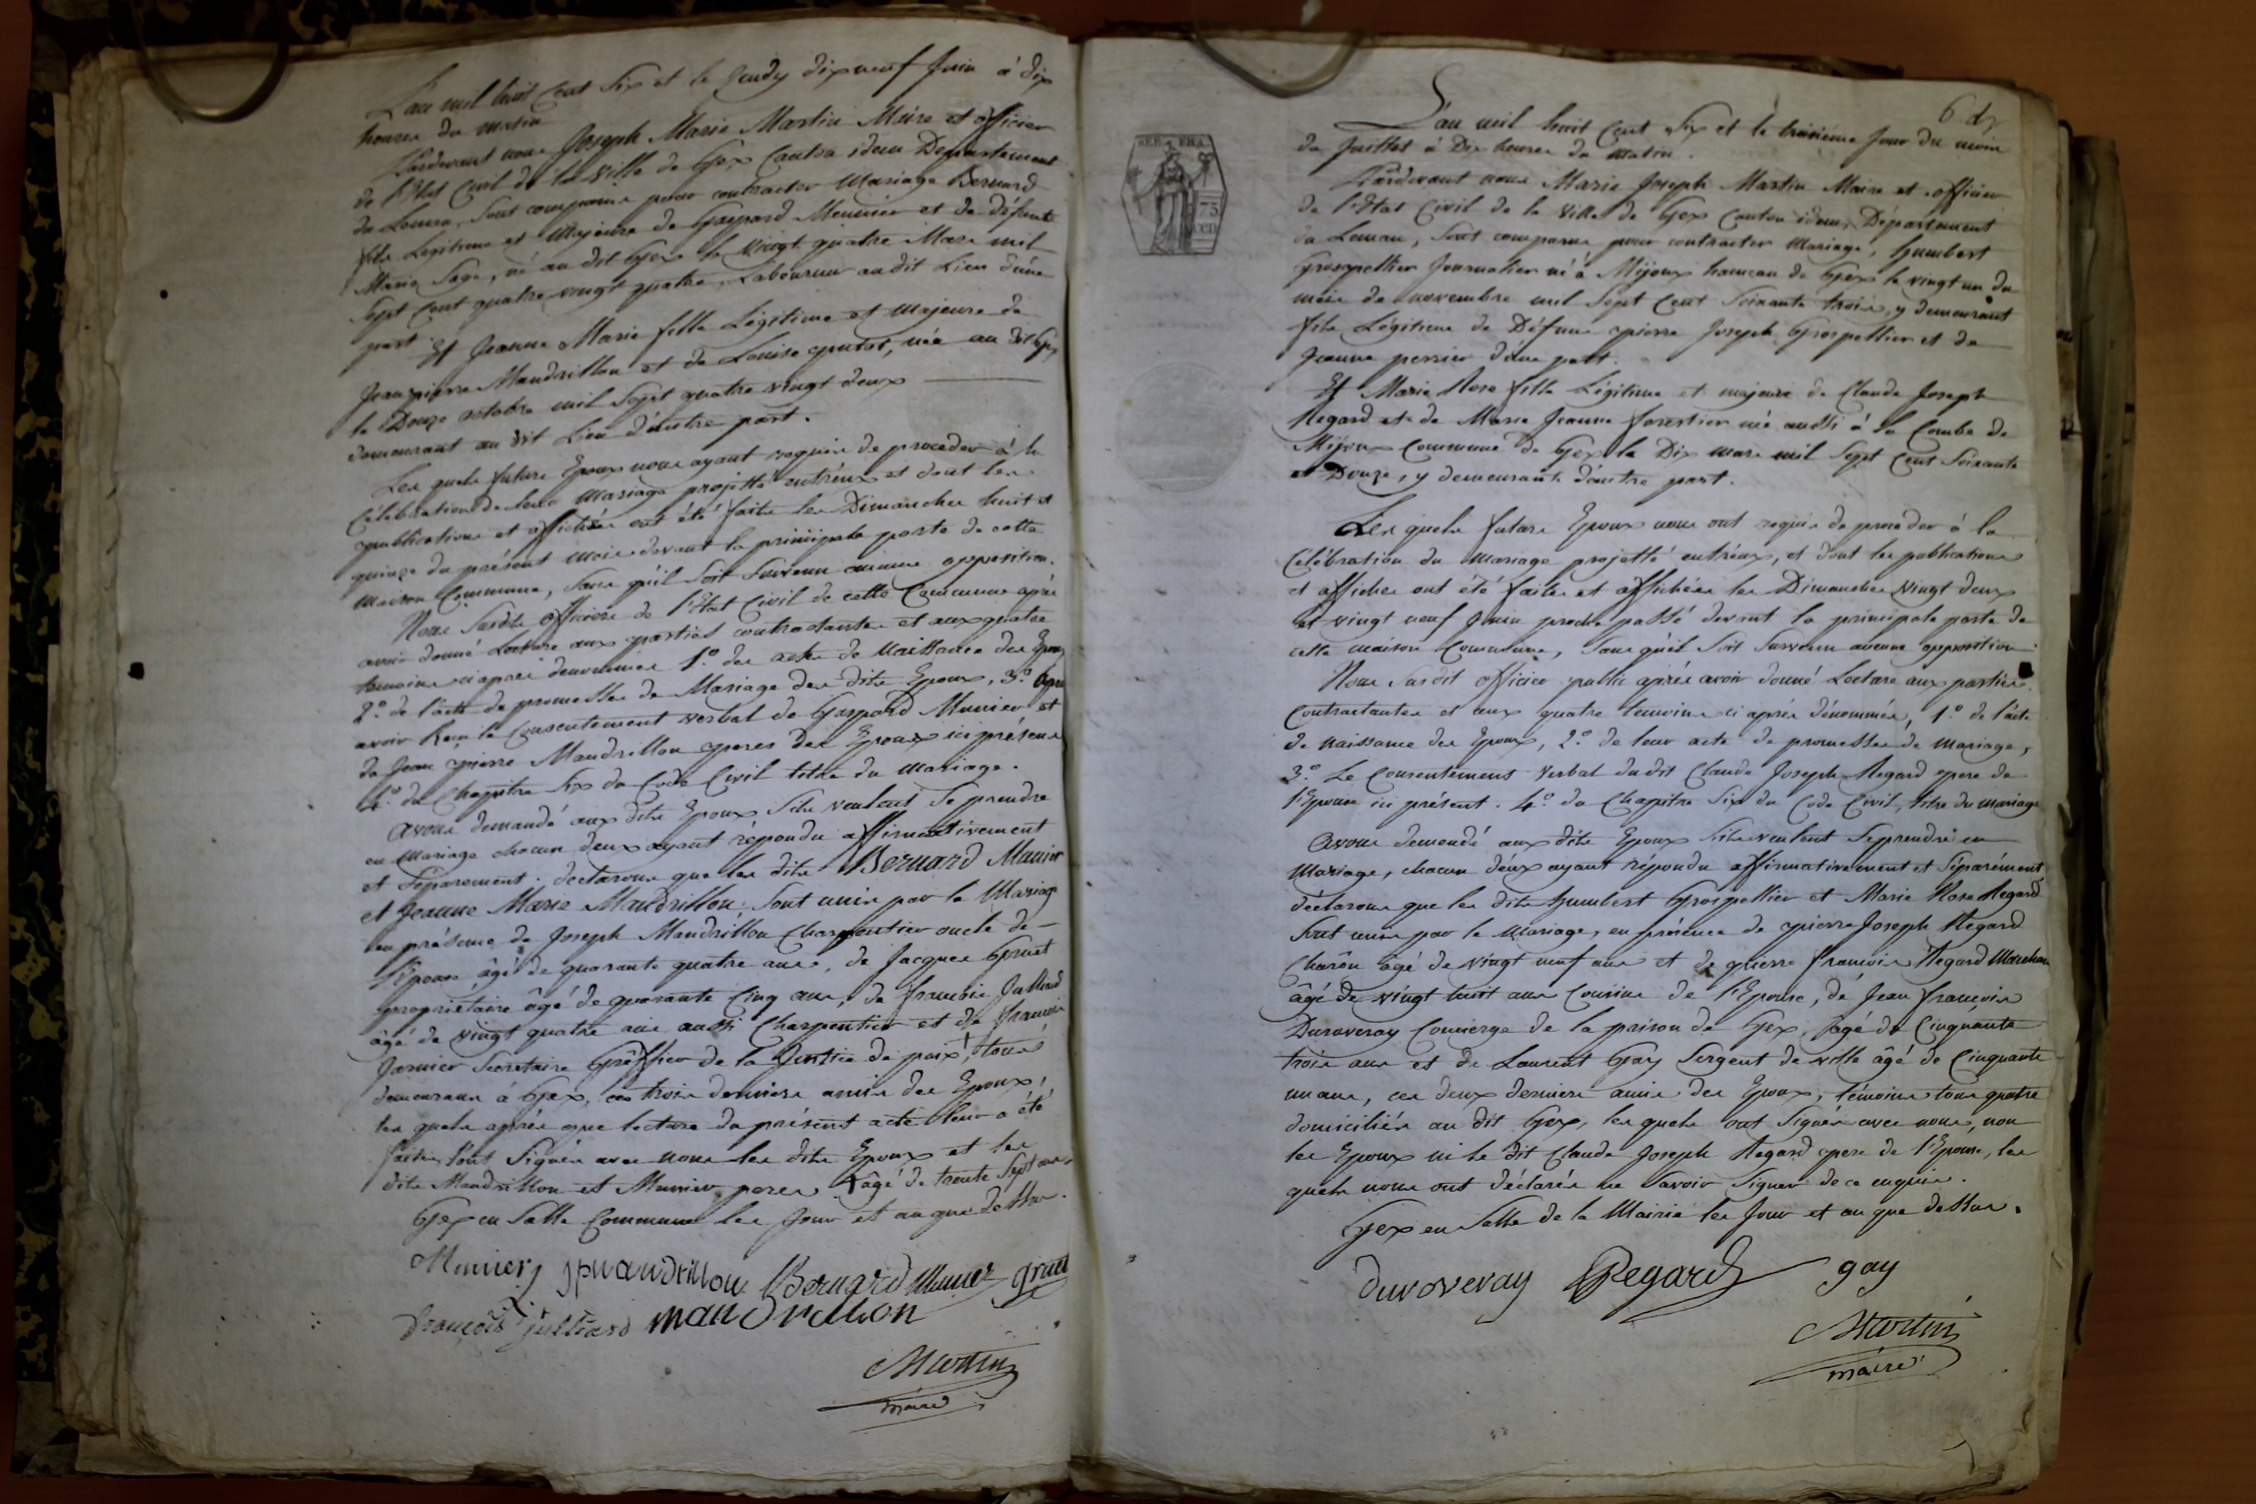 L'an mil huit Cent Six et le Jeudy dix neuf Juin à dix
heures du matin
Pardevant nous Joseph Marie Martin Maire et officier
de l'Etat Civil de la ville de Gex Canton idem Departement
du Leman, Sont comparus pour contracter Mariage Bernard
fils Légitime et Majeure de Gaspard Meunier et de défunte
Marie Sage, né au dit Gex le vingt quatre Mars mil
Sept Cent quatre vingt quatre, Laboureur au dit Lieu d'une
part
Et Jeanne Marie fille Légitime et Majeure de
Jean pierre Mandrillon et de Louise , née au dit Gex
le Douze octobre mil Sept quatre vingt deux
demeurant au dit Lieu d'autre part.
Les quels futurs Epoux nous ayant requis de proceder à la
Célébration de leur Mariage projetté entr'eux et dont les
publications et affiches ont été faites les Dimanches huit et
quinze du présent mois devant la principale porte de cette
maison Commune, sans qu'il soit Survenu aucune opposition.
Nous Susdit officier de l'Etat Civil de cette Commune après
avoir donné Lecture aux parties contractantes et aux quatre
temoins ci après denommés 1.° des actes de Naissance des Epoux
2.° de l'acte de promesses de Mariage des dits Epoux, 3.° après
avoir Reçu le Consentement verbal de Gaspard Munier et
de Jean pierre Mandrillon peres des Epoux ici présens
4.° du Chapitre Six du Code Civil titre du mariage.
avons demandé aux dits Epoux S'ils veulent Se prendre
en Mariage chacun d'eux ayant répondu affirmativement
et Séparement. declarons que les dits Bernard Munier
et Jeanne Marie Mandrillon, Sont unis par le Mariage
en présence de Joseph Mandrillon Charpentier oncle de
l'Epouse âgé de quarante quatre ans, de Jacques Gruet
proprietaire âgé de quarante Cinq ans, de françois Julliard
âgé de vingt quatre ans aussi Charpentier et de françois
Jarnier Secretaire Gréffier de la Justice de paix tous
demeurans à Gex, ces trois derniers amis des Epoux,
les quels après que lecture du présent acte leur a été
faite, l'ont Signés avec nous les dits Epoux et les
dits Mandrillon et Munier peres âgé de trente Sept ans
Gex en Salle Commune les Jour et an que dessus.
Munier jpmandrillon Bernard Munier gruet
françois julliard mandrillon
Martin
maire
6
L'an mil huit Cent Six et le troisième Jour du mois
de Juillet à Dix heures du matin.
Pardevant nous Marie Joseph Martin Maire et officier
de l'Etat Civil de la Ville de Gex Canton idem, Département
du Leman, Sont comparus pour contracter Mariage, Humbert
Grospellier Journalier né à Mijoux hameau de Gex le vingt un du
mois de novembre mil Sept Cent Soixante trois, y demeurant
fils Légitime de Défunt pierre Joseph Grospellier et de
Jeanne perrier d'une part.
Et Marie Rose fille Légitime et majeure de Claude Joseph
Regard et de Marie Jeanne forestier née aussi à la Combe de
Mijoux Commune de Gex le Dix mars mil Sept Cent Soixante
et Douze, y demeurante d'autre part.
Les quels futurs Epoux nous ont requis de proceder à la
Célébration du mariage projetté entr'eux, et dont les publications
et affiches ont été faites et affichées les Dimanches vingt deux
et vingt neuf Juin proche passé devant la principale porte de
cette maison Commune, Sans qu'il Soit Survenu aucune opposition.
Nous Susdit officier public après avoir donné Lecture aux parties
Contractantes et aux quatre temoins ci après dénommés, 1.° de l'acte
de naissance des Epoux, 2.° de leur acte de promesses de mariage,
3.° Le Consentement Verbal du dit Claude Joseph Regard pere de
l'Epouse ici présent. 4.° du Chapitre Six du Code Civil, titre du mariage
avons demandé aux dits Epoux S'ils veulent Se prendre en
mariage, chacun d'eux ayant répondu affirmativement et Séparément
déclarons que les dits Humbert Grospellier et Marie Rose Regard
Sont unis par le Mariage, en présence de pierre Joseph Regard
Charon âgé de vingt neuf ans et de pierre françois Regard Marchand
âgé de vingt huit ans Cousins de l'Epouse, de Jean françois
Duroveray Concierge de la prison de Gex, âgé de Cinquante
trois ans et de Laurent Gay Sergent de ville âgé de Cinquante
un ans, ces deux derniers amis des Epoux, témoins tous quatre
domiciliés au dit Gex, les quels ont Signés avec nous, non
les Epoux ni le dit Claude Joseph Regard pere de l'Epouse, les
quels nous ont déclarés ne Savoir Signer de ce enquis.
Gex en Salle de la Mairie les Jour et an que dessus.
duroveray Regard gay
Martin
maire